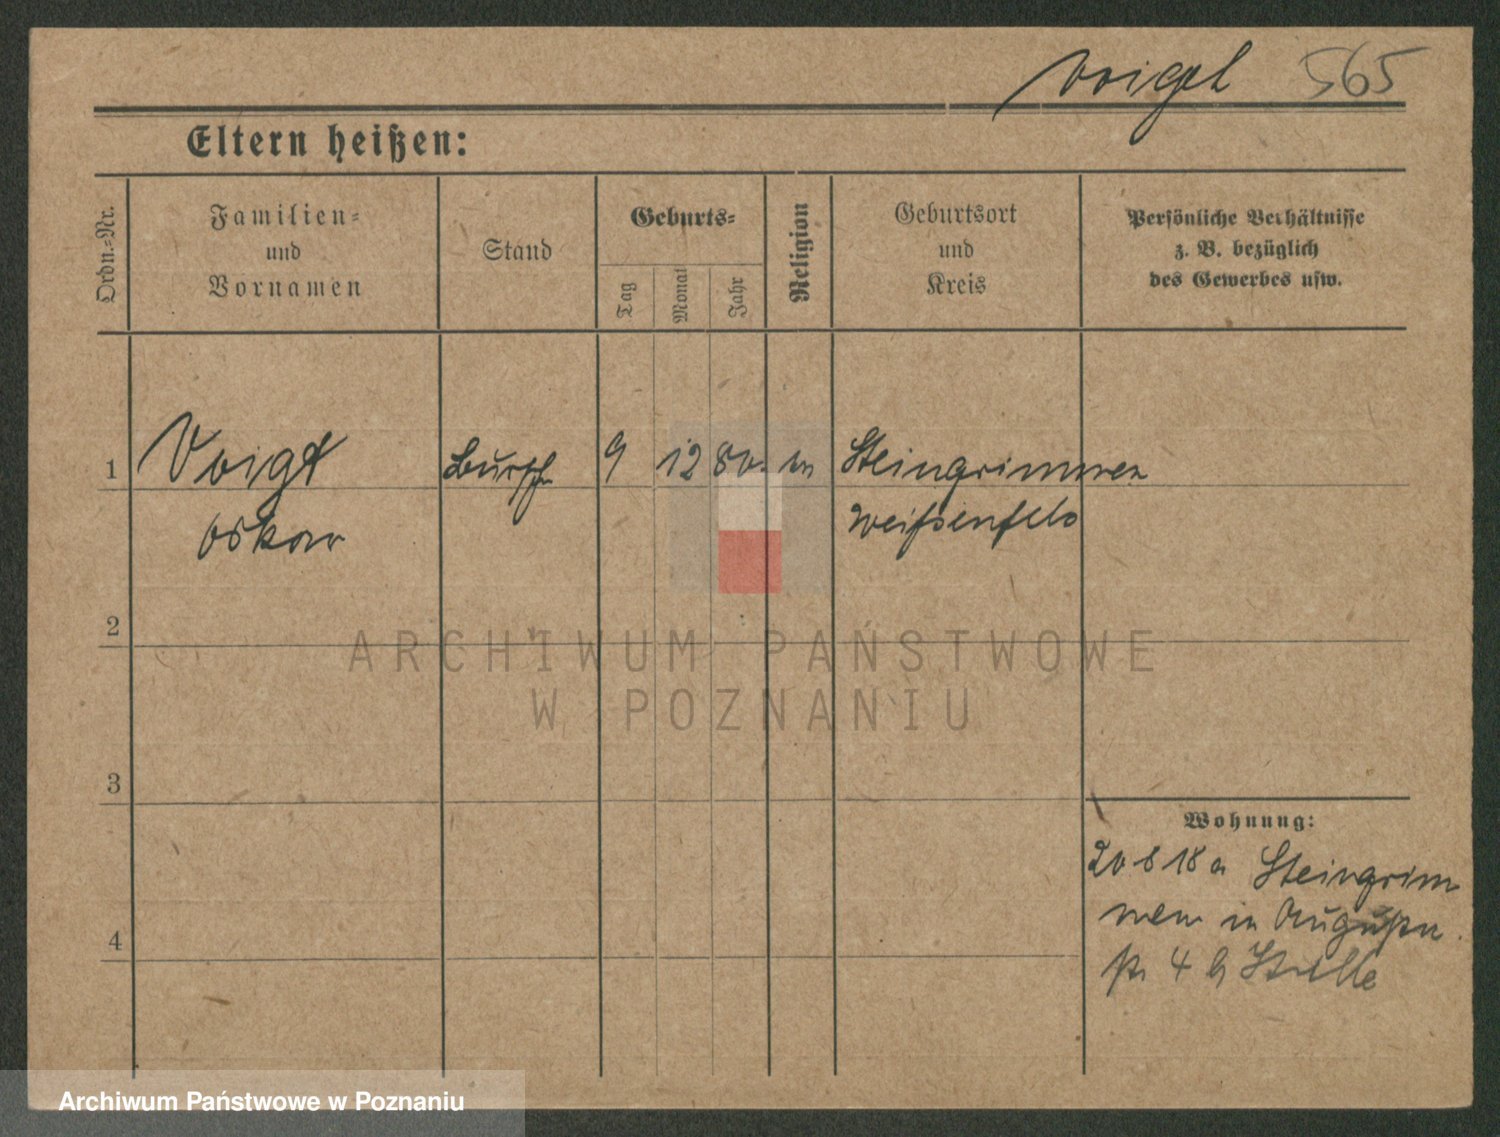 Voigt 565
Eltern heißen:
Ordn.=Nr.
Familien=
und
Vornamen
Stand
Geburts=
Tag
Monat
Jahr
Religion
Geburtsort
und
Kreis
Persönliche Verhältnisse
z. B. bezüglich
des Gewerbes usw.
1 Voigt Bursch 9 12 80. Steingrimmen
Oskar Weißenfels
2
ARCHIWUM PAŃSTWOWE
W POZNANIU
3
Wohnung:
20 8 18 a Steingrim
men in Augusta
4
str 4 b Stelle
Archiwum Państwowe w Poznaniu